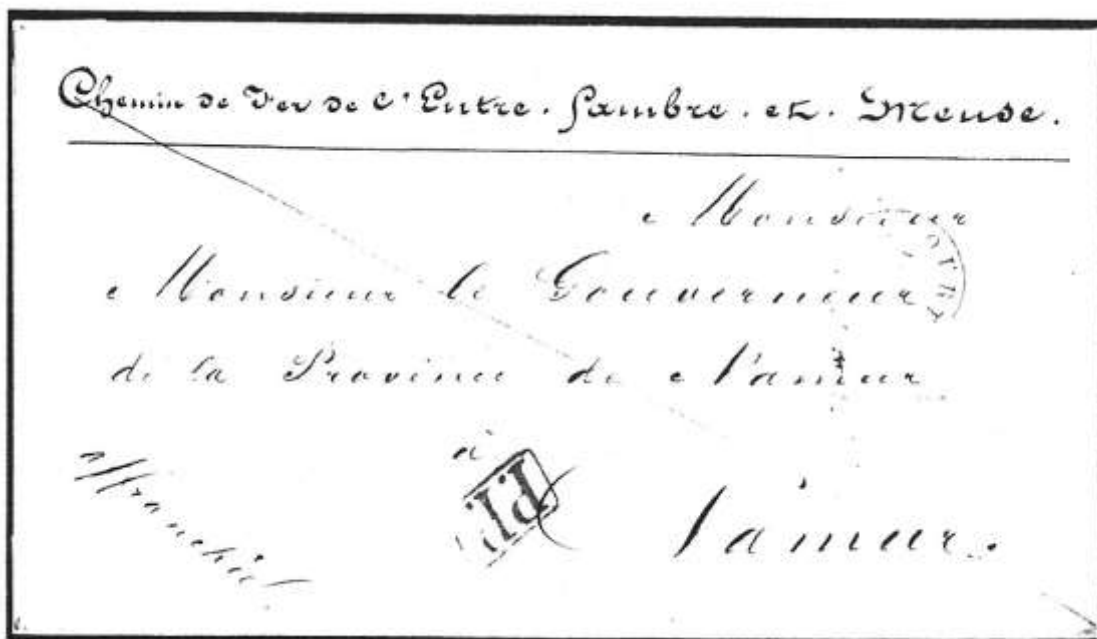 Chemin de Fer de l'Entre. Sambre. et. Meuse.
Monsieur
Monsieur le Gouverneur
de la Province de Namur
à
Namur.
affranchie
PP